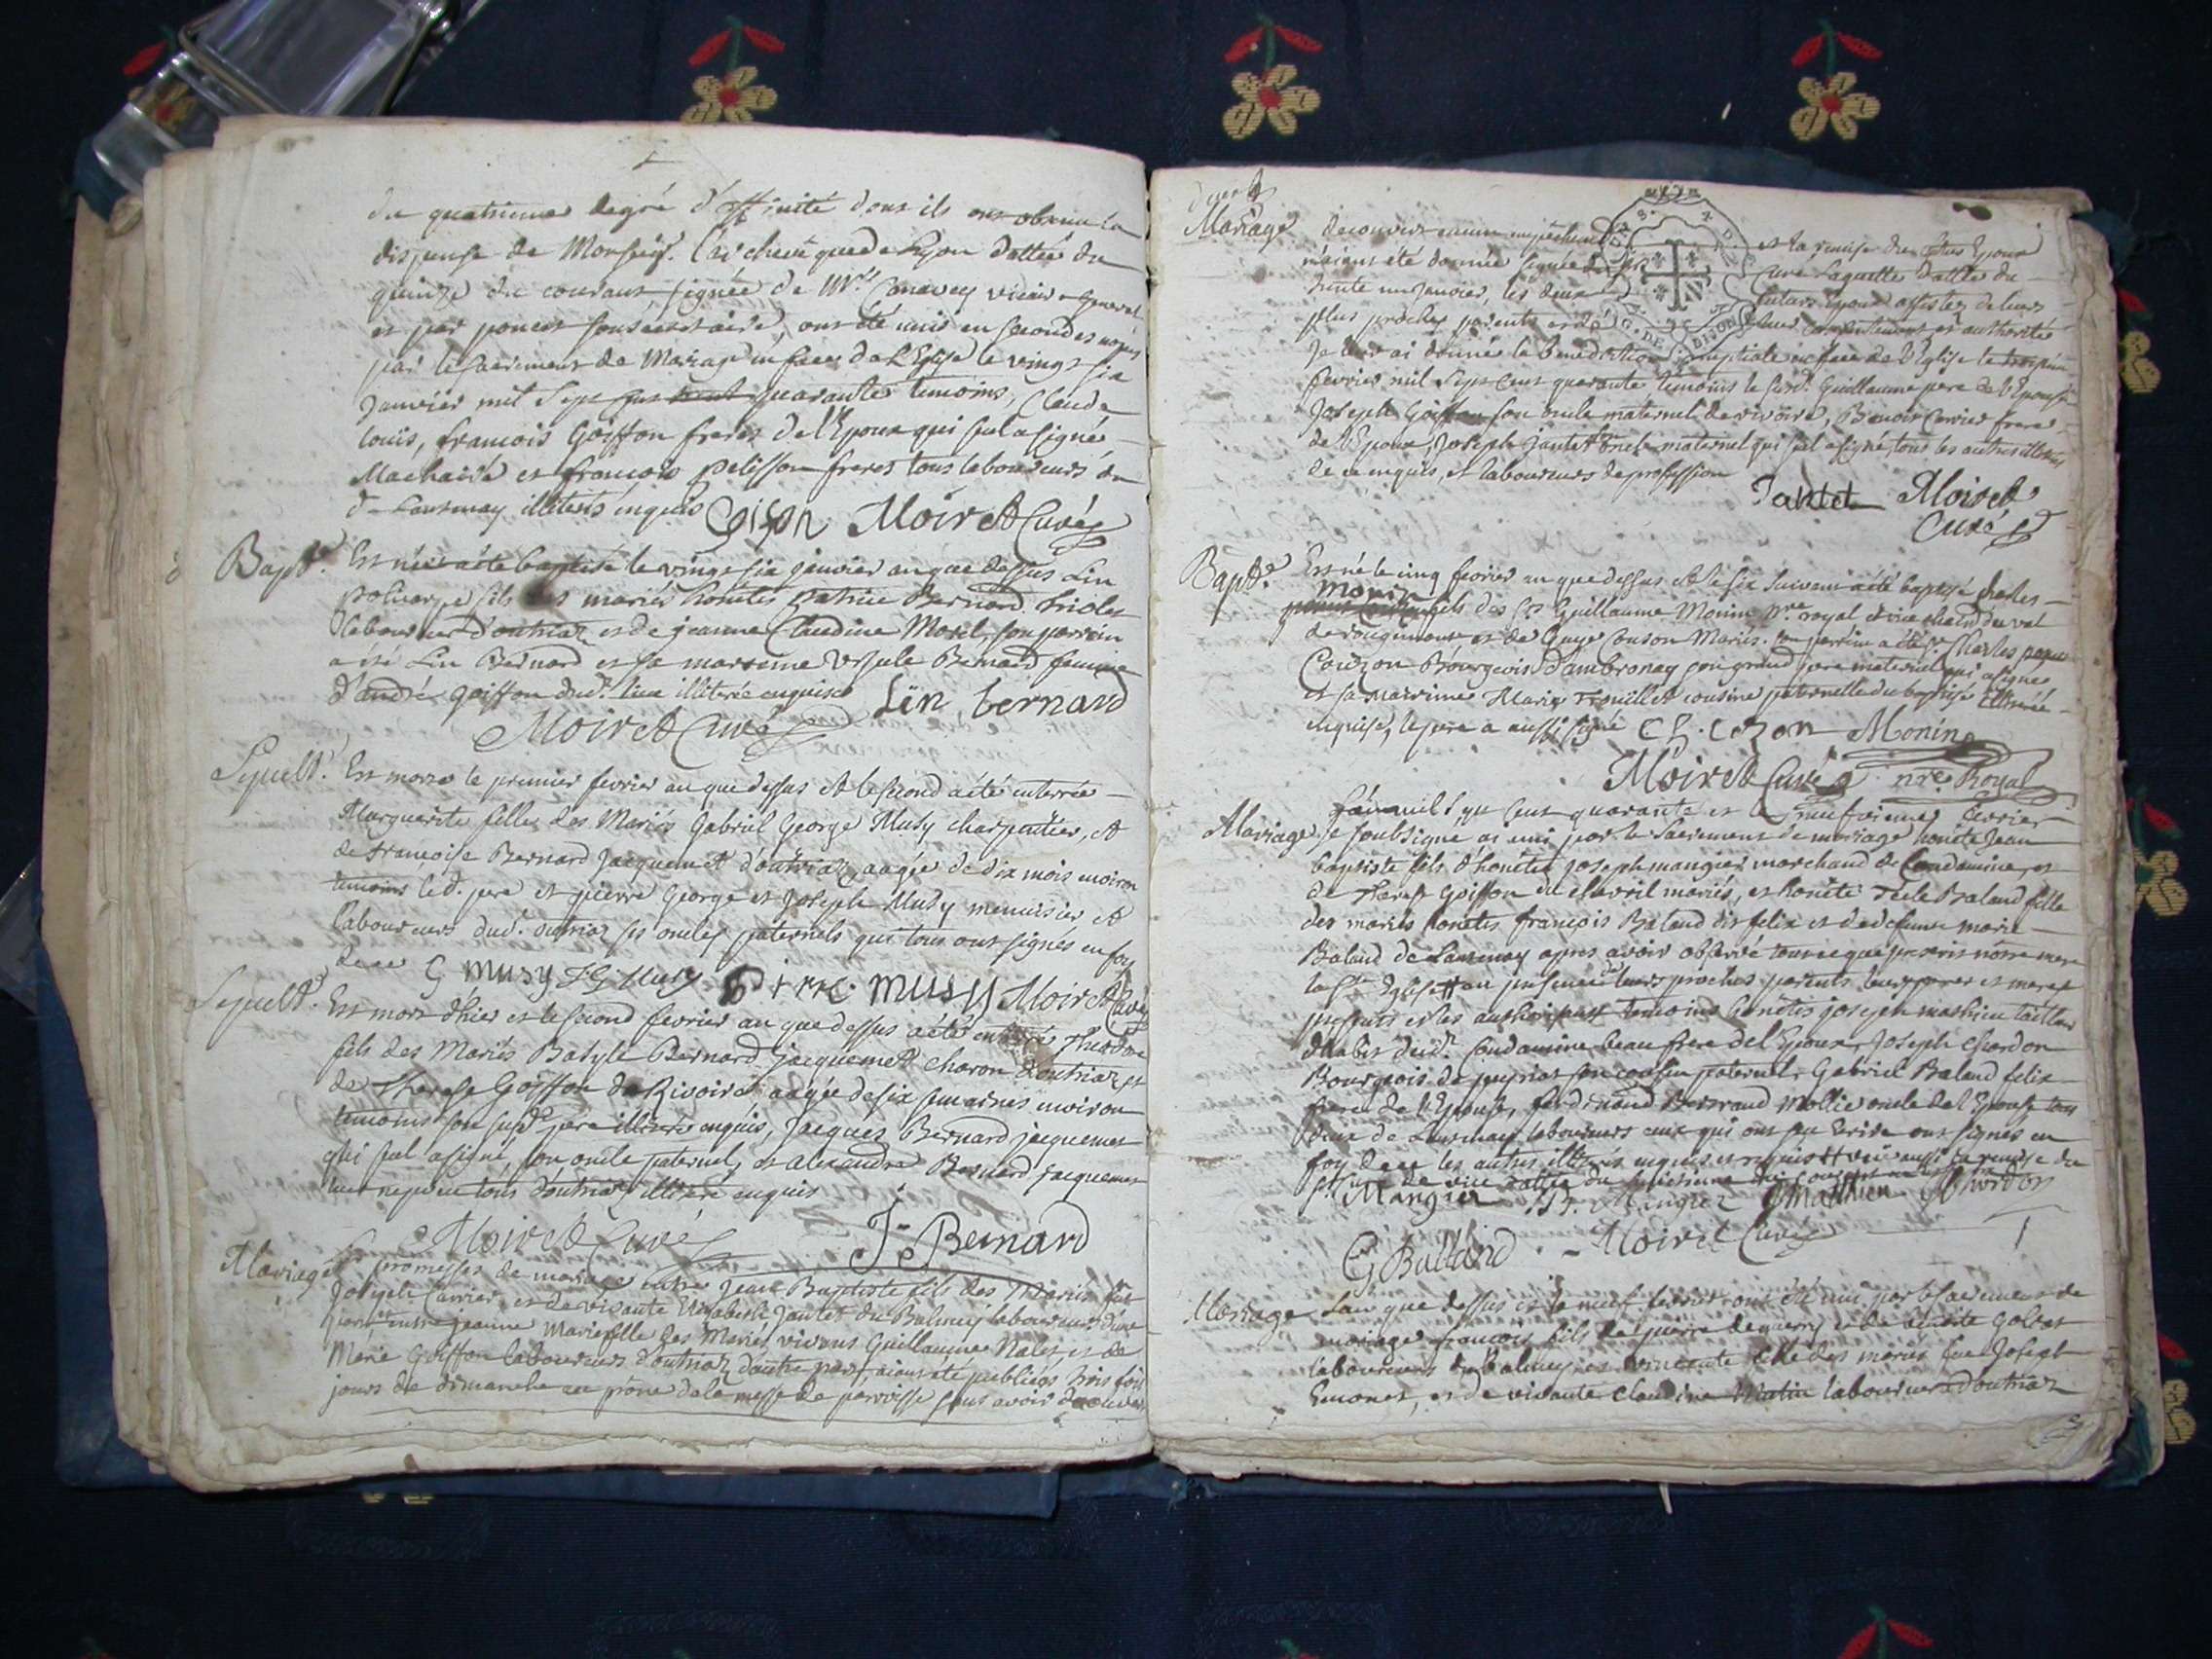 du quatrieme degré d'affinité dont ils ont obtenu la
dispense de Monseig.r l'archeveque de Lyon dattée du
quinze du courant, signée de Mr. vicaire general
et par ponces sousecretaire, ont été unis en secondes noces
par le sacrement de Mariage en face de L'Eglise le vingt six
Janvier mil sept cent quarante temoins, Claude
louis, francois Goiffon freres de l'Epoux qui seul a signé
Machaire et francois pelisson freres tous laboureurs du
d. illiterés enquis Goifon Moiret Curé
Bapt. Est né et a été baptisé le vingt six janvier an que dessus Lin
policarpe fils des mariés honetes patrice Bernard
laboureur d'outriaz et de jeanne Claudine Morel, son parrain
a été Lin Bernard et sa marreine Ursule Bernard femme
d'andré goiffon dud. lieu illiterée enquise Lin bernard
Moiret Curé
Sepult. Est morte le premier fevrier an que dessus et le second a été enterrée
Marguerite fille des Mariés Gabriel George Musy charpentier, et
de françoise Bernard Jacquemet d'outriaz, aagée de dix mois environ
temoins led. pere et pierre George et Joseph Musy menuisier et
laboureurs dud. outriaz ses oncles paternels qui tous ont signés en foy
de ce G musy JG Musy Pirre musy Moiret Curé
Sepult. Est mort d'hier et le second fevrier an que dessus a été enterré Theodore
fils des Mariés Batyle Bernard jacquemet charon d'outriaz et
de Therese Goiffon de Rivoire aagée de six semaines environ
temoins son susd. pere illiteré enquis, Jacques Bernard jacquemet
qui seul a signé, son oncle paternel, et alexandre Bernard jacquemet
neveu tous d'outriaz illiteré enquis
Moiret Curé Je Bernard
Mariage Les promesses de mariage entre Jean Baptiste fils des Mariés feu
Joseph Carrier et de vivante Elisabeth Jantet du Balmey laboureurs d'une
part et entre jeanne Marie fille des Mariés vivans Guillaume Nalet et de
Marie Goiffon laboureurs d'outriaz d'autre part, aiant été publiées trois fois
jours de dimanche au prône de la messe de parroisse sans avoir decouvert
Mariage decouvert aucun empechement et la remise du Epoux
m'aiant été donnée signée du Sr Curé laquelle dattée du
trente un janvier, les deux futurs Epoux assistez de leurs
plus proches parents et de leurs consentement et authorité
Je leur ai donné la benediction nuptiale en face de l'Eglise le
fevrier mil sept cent quarante temoins le susd. Guillaume pere de l'Epouse
Joseph Goiffon son oncle maternel de rivoire, Benoit Carrier frere
de l'Epoux, Joseph jantet oncle maternel qui seul a signé, tous les autres illiterés
de ce enquis, et laboureurs de profession
Jantet Moiret
Curé
Bapt. Est né le cinq fevrier an que dessus et le six suivant a été baptisé charles
Monin
fils des Srs Guillaume Monin Nre royal et du val
de rougemont et de Couson Mariés. son parrain a été Sr Charles
Couzon Bourgeois d'ambronay son grand pere maternel qui a signé
et sa marrine Marie cousine paternelle du baptisé illiterée
enquise, le pere a aussi signé Ch. cozon Monin
Moiret Curé nre Royal
L'an mil sept cent quarante et le neufvieme fevrier
Mariage Je soubsigné ai uni par le sacrement de mariage honete Jean
baptiste fils d'honetes joseph mangier marchand de Condamine, et
de Therese Goiffon du mariés, et honete Tecle Baland fille
des mariés honetes françois Baland dit felix et de defunte marie
Baland de apres avoir observé tout ce que prescrit nôtre mere
la Ste Eglise en presence de leurs proches parents leurs peres et meres
presents et les authorisant temoins honetes joseph mathieu tailleur
d'habits dud. Condamine beau frere de l'Epoux, Joseph chardon
Bourgeois de peyriat son cousin paternel, Gabriel Baland felix
frere de l'Epouse, ferdinand Bertrand Mollie oncle de l'Epouse tous
deux de laboureurs ceux qui ont su ecrire ont signés en
foy de ce les autres illiterés enquis et requis veu aussi la remise du
Sr curé
Mangier JB. Mangier Mathieu Chardon
G Balland Moiret Curé
Mariage L'an que dessus et le neuf fevrier ont été uni par le sacrement de
mariage francois fils de pierre deguerry et de benoite golvet
laboureurs du Balmey et vincente fille des mariés feu Joseph
Emonet, et de vivante Claudine Matin laboureurs d'outriaz